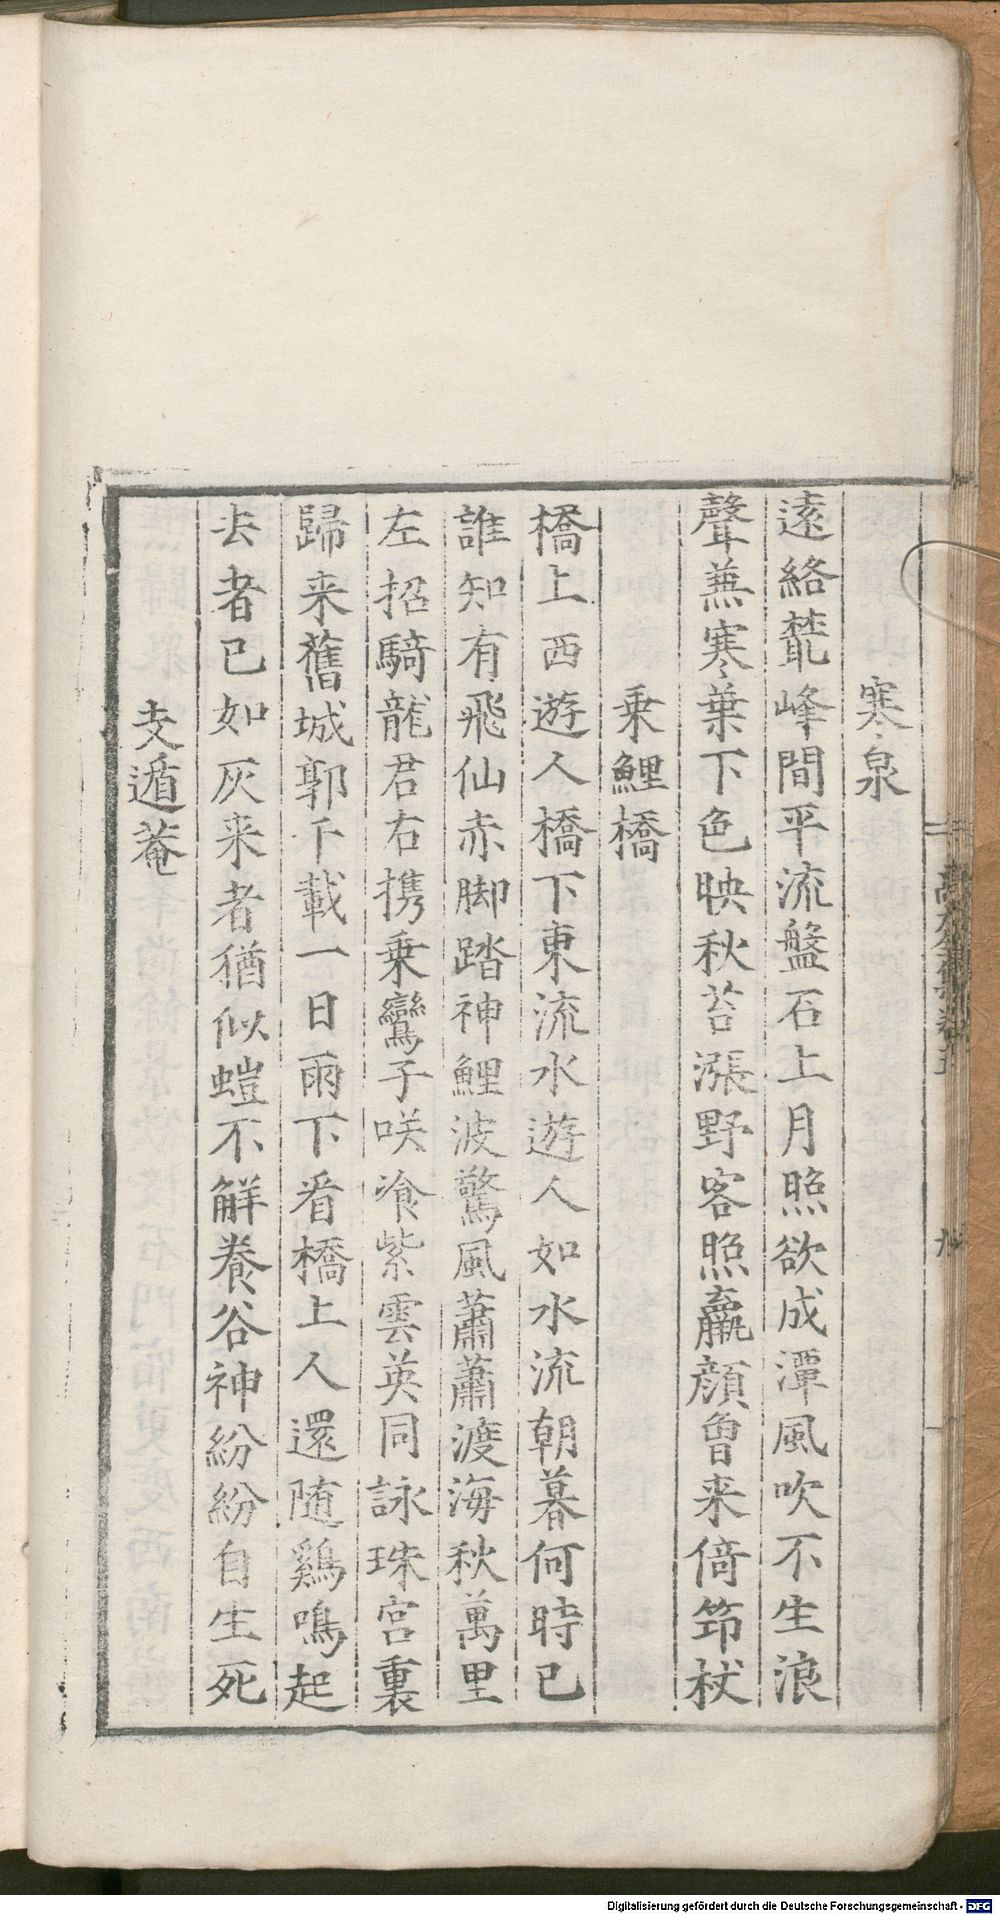 寒泉
遠絡蓂峰間平流盤石上月照欲成潭風吹不生浪
聲兼寒葉下色映秋苔漲野客照羸顔曾来倚笻杖
乗鯉橋
橋上西遊人橋下東流水遊人如水流朝暮何時已
誰知有飛仙赤脚踏神鯉波驚風蕭蕭渡海秋萬里
左招騎龍君右携乗鸞子咲飡紫雲英同詠珠宮裏
歸来舊城郭千載一日雨下看橋上人還随鷄鳴起
去者已如灰来者猶似螘不觧養谷神紛紛自生死
支遁菴
Digitalisierung gefördert durch die Deutsche Forschungsgemeinschaft - DFG